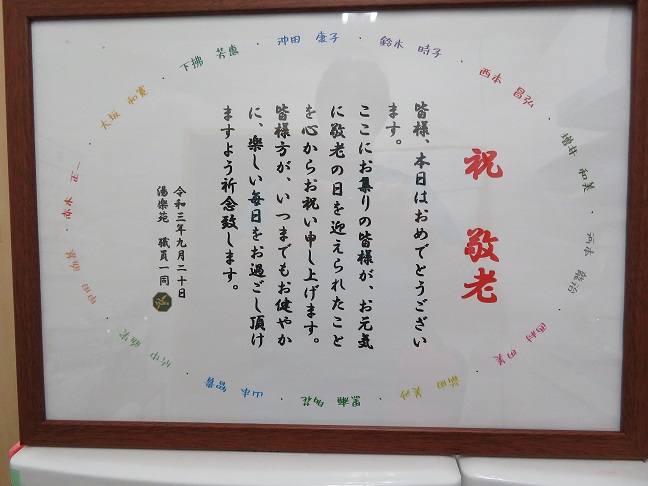 祝 敬老
皆様、本日はおめでとうござい
ます。
ここにお集りの皆様が、お元気
に敬老の日を迎えられたこと
を心からお祝い申し上げます。
皆様方が、いつまでもお健やか
に、楽しい毎日をお過ごし頂け
ますよう祈念致します。
令和三年九月二十日
湯楽苑 職員一同
大坂 和寛
下拂 芳恵
沖田 康子
鈴木 時子
西本 昌弘
増井 和美
河本
西村
前田 美沙
黒瀬
山本 智貴
竹中
赤木 正一